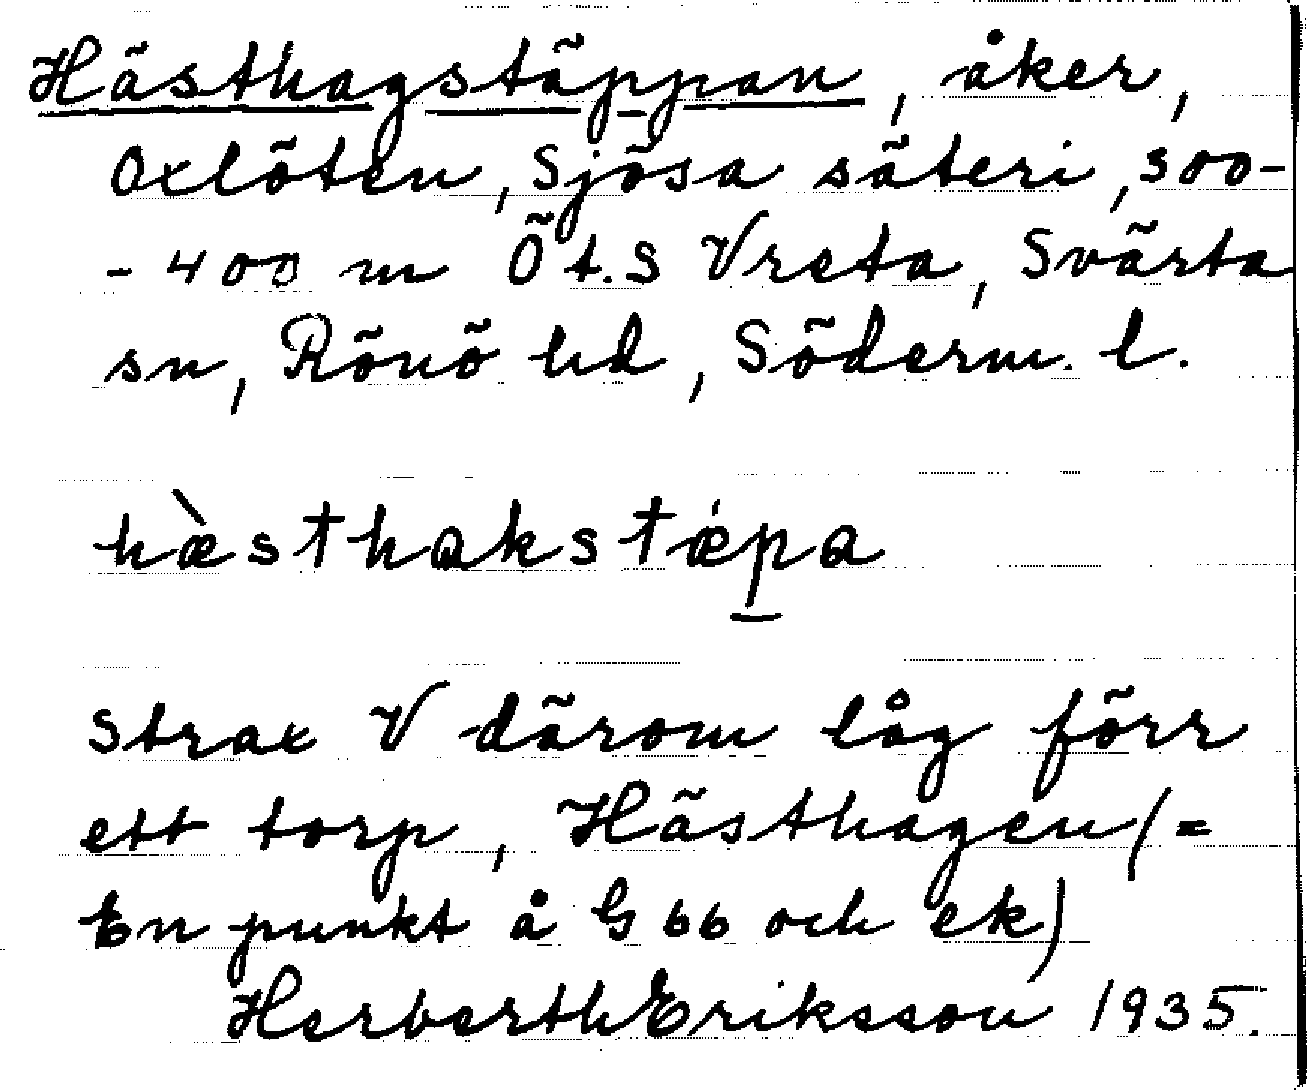 Hästhagstäppan, åker,
Oxlöten, Sjösa säteri, 300-
- 400 m Ö t.S Vreta, Svärta
sn, Rönö hd, Söderm. l.
hæ̀sthakstǽpa
Strax V därom låg förr
ett torp, Hästhagen (=
En punkt å G 66 och ek)
Herberth Eriksson 1935.